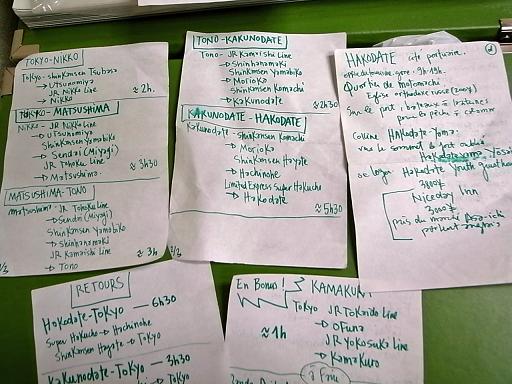 TOKYO-NIKKO
Tokyo - Shinkansen Tsubasa
→ Utsunomiya
JR Nikko Line
→ Nikko
≈ 2h.
TOKYO-MATSUSHIMA
Nikko - JR Nikko Line
→ Utsunomiya
Shinkansen Yamabiko
→ Sendai (Miyagi)
JR Tohoku Line
→ Matsushima
≈ 3h30
MATSUSHIMA-TONO
Matsushima - JR Tohoku Line
→ Sendai (Miyagi)
Shinkansen Yamabiko
→ Shinhanamaki
JR Kamaishi Line
→ Tono
≈ 3h
1/3
TONO-KAKUNODATE
Tono - JR Kamaishi Line
→ Shinhanamaki
Shinkansen Yamabiko
→ Morioka
Shinkansen Komachi
→ Kakunodate
≈ 2h30
KAKUNODATE-HAKODATE
Kakunodate - Shinkansen Komachi
→ Morioka
Shinkansen Hayate
→ Hachinohe
Limited Express Super Hakucho
→ Hakodate
≈ 5h30
2/3
HAKODATE cité portuaire.
office du tourisme, gare: 9h-19h.
Quartier de Motomachi
Eglise orthodoxe russe
Sur le port: bateaux à lanternes
pour la pêche
Colline Hakodate-Yama:
Hakodate Youth Guesthouse
3800¥
Niceday Inn
3000¥
près du marché Asa-ichi
RETOURS
Hakodate-Tokyo — 6h30
Super Hakucho → Hachinohe
Shinkansen Hayate → Tokyo
Kakunodate-Tokyo — 3h30
→ Tokyo
En Bonus!
KAMAKURA
Tokyo JR Tokaido Line
→ Ofuna
JR Yokosuka Line
→ Kamakura
≈ 1h